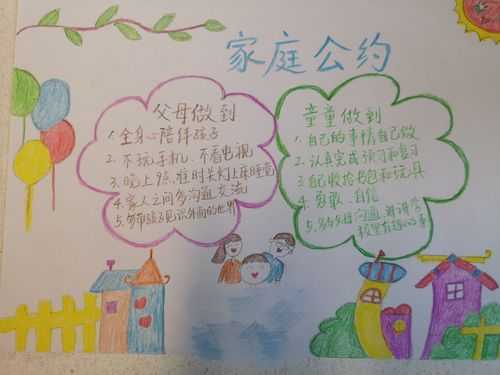 家庭公约
父母做到
1.全身心陪伴孩子
2.不玩手机、不看电视
3.晚上9点准时关灯上床睡觉
4.家人之间多沟通交流
5.多带孩子见识外面的世界
童童做到
1.自己的事情自己做
2.认真完成预习和复习
3.自己收拾书包和玩具
4.勇敢、自信
5.多与父母沟通,并讲学
校里有趣的事